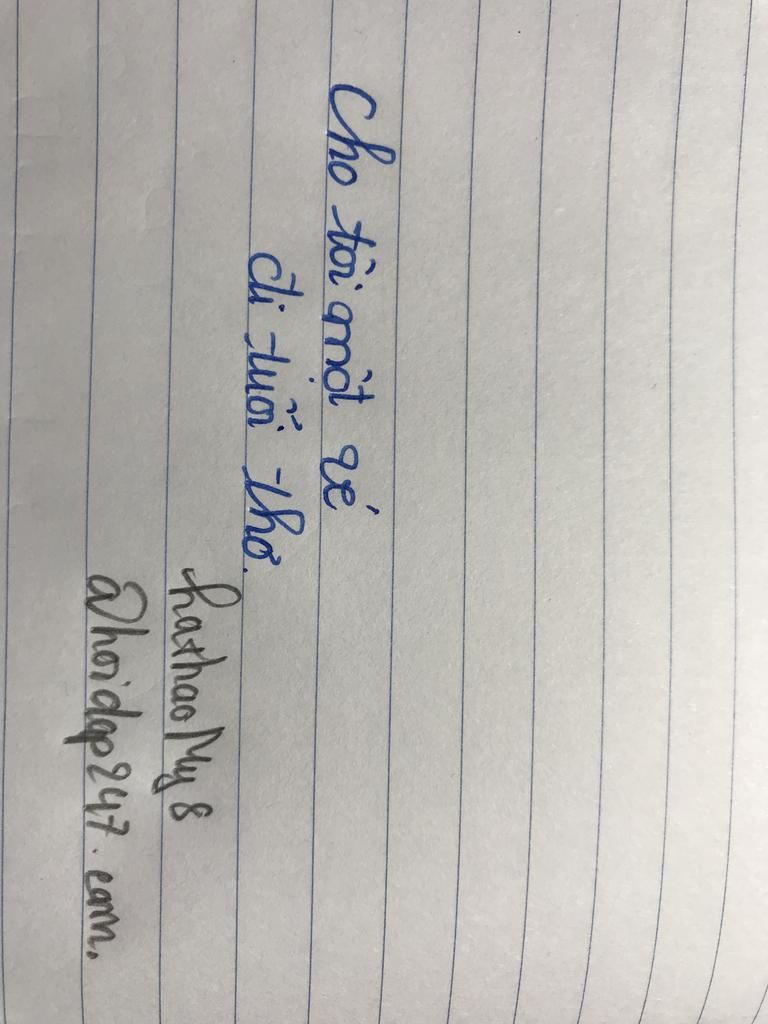 Cho tôi một vé
đi tuổi thơ.
hathaoMy8
@hoidap247.com.